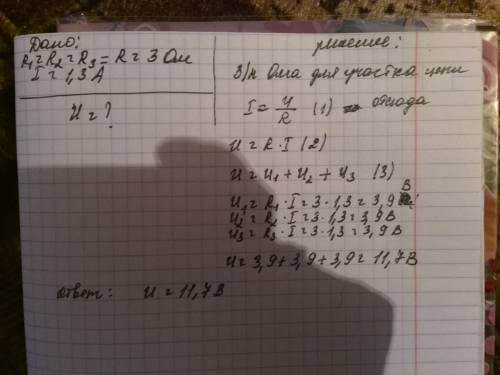 Дано:
R₁=R₂=R₃=R=3 Ом
I=1,3 А
U=?
решение:
З/н Ома для участка цепи
I=U/R (1) отсюда
U=R·I (2)
U=U₁+U₂+U₃ (3)
U₁=R₁·I=3·1,3=3,9 В
U₂=R₂·I=3·1,3=3,9В
U₃=R₃·I=3·1,3=3,9В
U=3,9+3,9+3,9=11,7В
ответ: U=11,7В